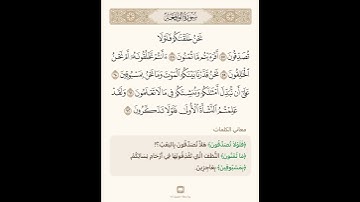 سُورَةُ الوَاقِعَةِ
نَحْنُ خَلَقْنَاكُمْ فَلَوْلَا
تُصَدِّقُونَ ٥٧ أَفَرَأَيْتُم مَّا تُمْنُونَ ٥٨ ءَأَنتُمْ تَخْلُقُونَهُ أَمْ نَحْنُ
الْخَالِقُونَ ٥٩ نَحْنُ قَدَّرْنَا بَيْنَكُمُ الْمَوْتَ وَمَا نَحْنُ بِمَسْبُوقِينَ ٦٠
عَلَىٰ أَن نُّبَدِّلَ أَمْثَالَكُمْ وَنُنشِئَكُمْ فِي مَا لَا تَعْلَمُونَ ٦١ وَلَقَدْ
عَلِمْتُمُ النَّشْأَةَ الْأُولَىٰ فَلَوْلَا تَذَكَّرُونَ ٦٢
معاني الكلمات
﴿فَلَوْلَا تُصَدِّقُونَ﴾ هَلَّا تُصَدِّقُونَ بِالبَعْثِ؟!
﴿مَا تُمْنُونَ﴾ النُّطَفَ الَّتِي تَقْذِفُونَهَا فِي أَرْحَامِ نِسَائِكُمْ
﴿بِمَسْبُوقِينَ﴾ بِعَاجِزِينَ